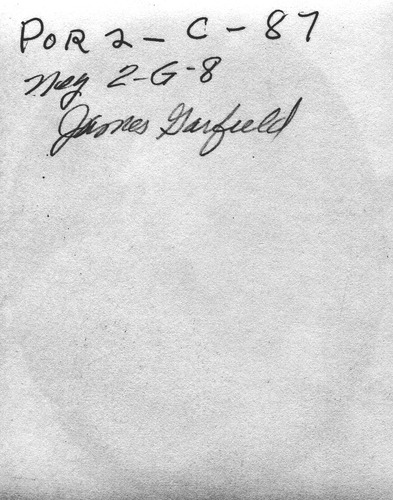 POR 2 - C - 87
Neg 2-G-8
James Garfield